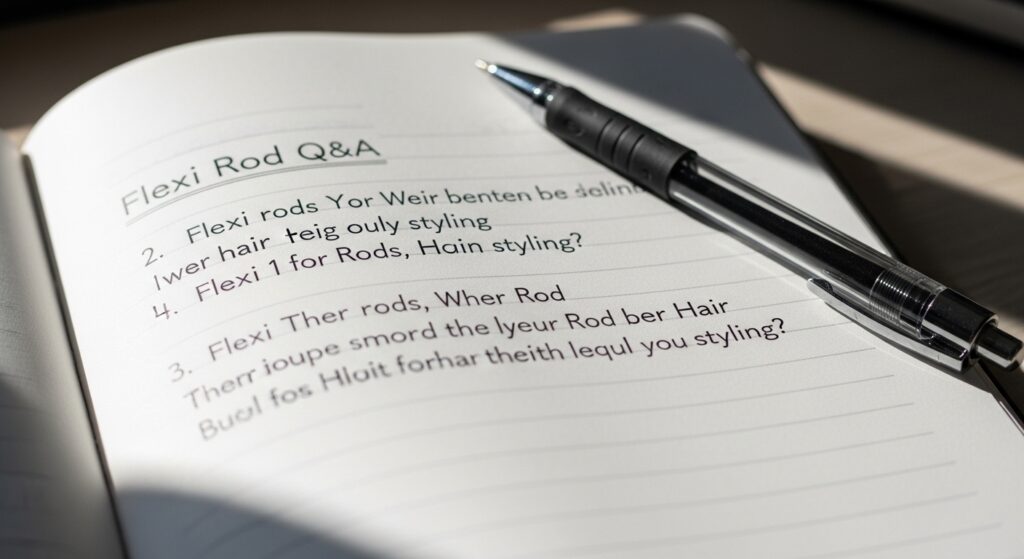 Flexi Rod Q&A
2. Flexi rods Yor Weir benten be
lwer hair teig ouly styling
4. Flexi 1 for Rods, Hain styling?
3. Flexi Ther rods, Wher Rod
Therr joupe smord the lyeur Rod ber Hair
fos Hluit forhar theith lequl you styling?